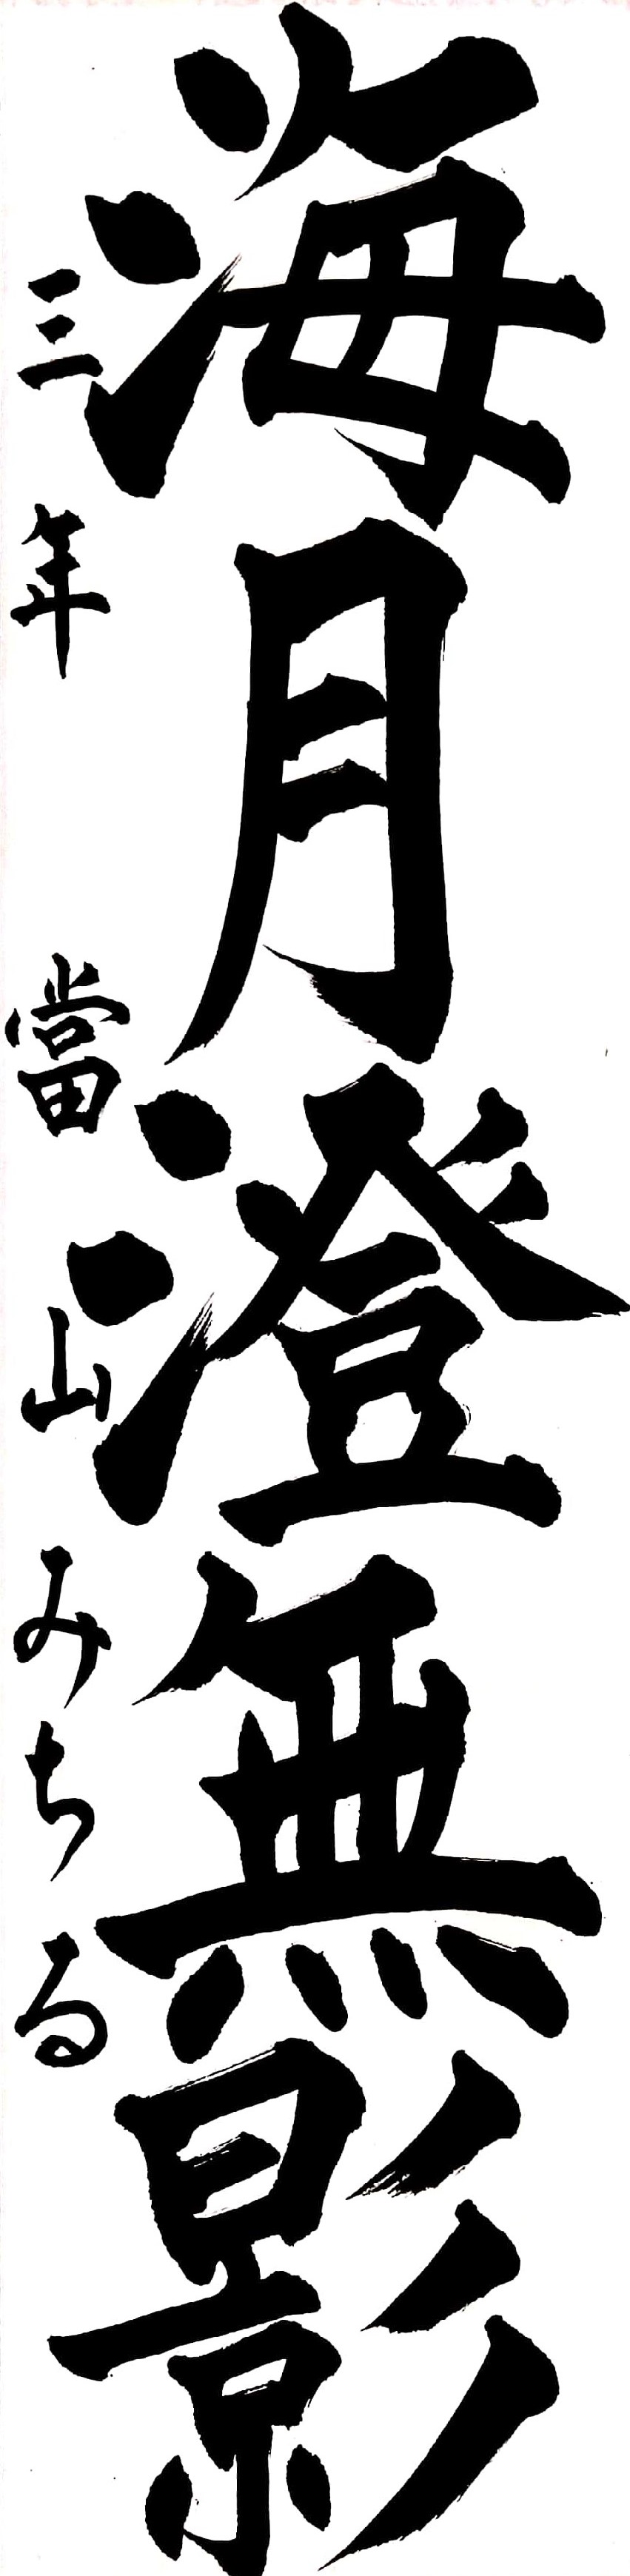 海月澄無影
三年 當山みちる